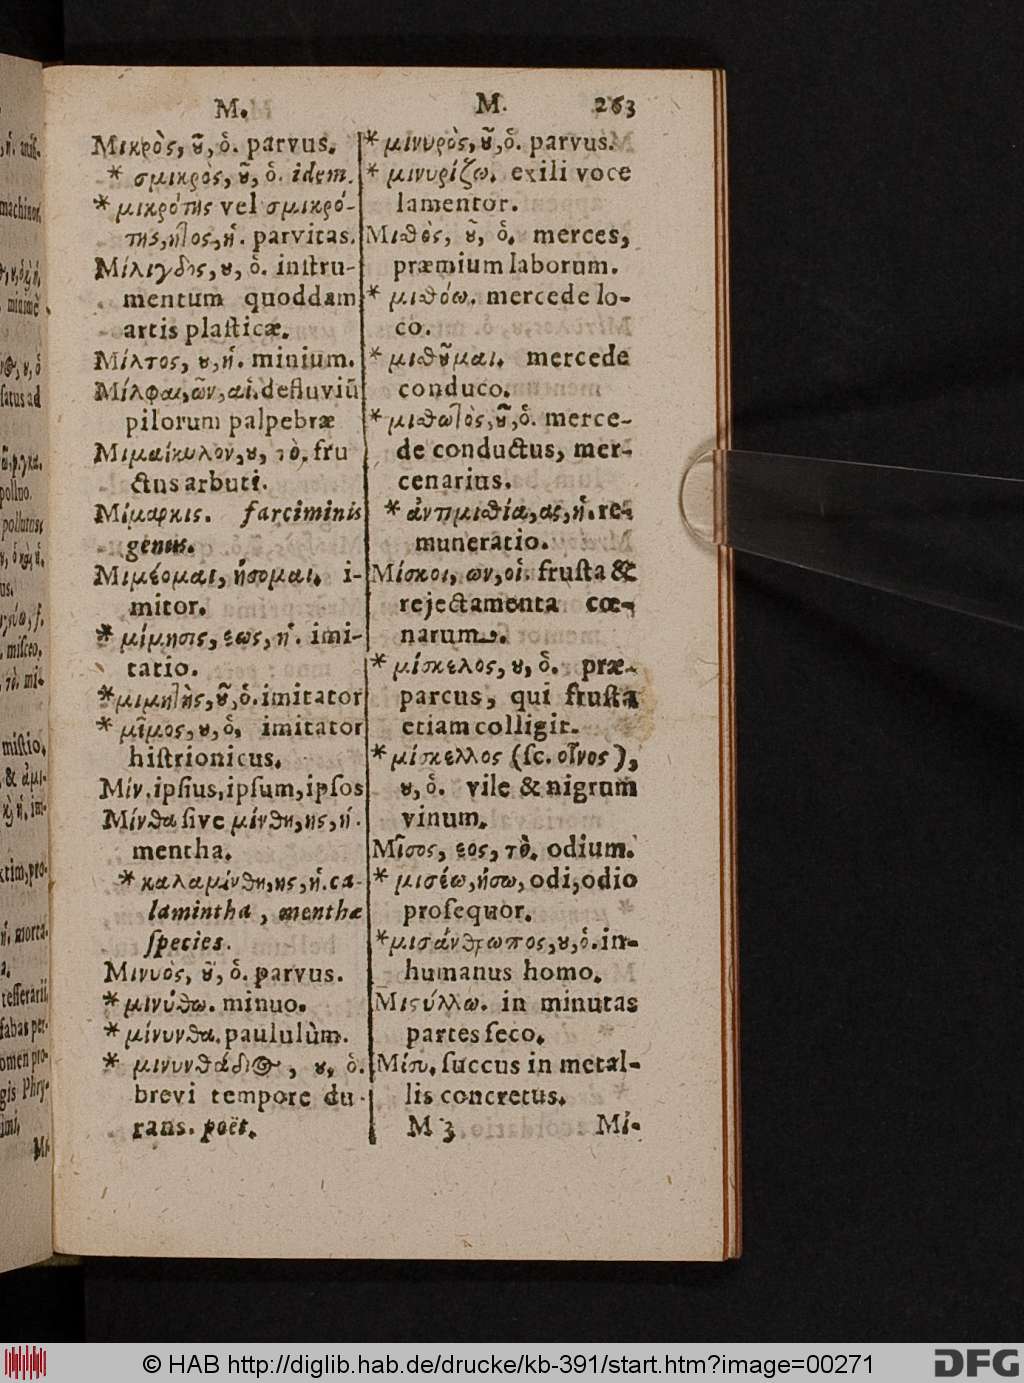 M.
Μικρὸς, ȣ͂, ὁ. parvus.
* σμικρὸς, ȣ͂, ὁ. idem.
* μικρότης vel σμικρό-
της, ητος, ἡ. parvitas.
Μίλιγδις, ȣ, ὁ. inſtru-
mentum quoddam
artis plaſticæ.
Μίλτος, ȣ, ἡ. minium.
Μίλφαι, ῶν, αἱ. defluviū
pilorum palpebræ
Μιμαίκυλον, ȣ, τὸ. fru
ctus arbuti.
Μίμαρκις. farciminis
genus.
Μιμέομαι, ήσομαι. i-
mitor.
* μίμησις, εως, ἡ. imi-
tatio.
* μιμητὴς, ȣ͂, ὁ. imitator
* μῖμος, ȣ, ὁ. imitator
hiſtrionicus.
Μίν. ipſius, ipſum, ipſos
Μίνθα ſive μίνθη, ης, ἡ.
mentha.
* καλαμίνθη, ης, ἡ. ca-
lamintha, menthæ
ſpecies.
Μινυὸς, ȣ͂, ὁ. parvus.
* μινύθω. minuo.
* μίνυνθα. paululùm.
* μινυνθάδιος, ȣ, ὁ.
brevi tempore du-
rans. poët.
M. 263
* μινυρὸς, ȣ͂, ὁ. parvus.
* μινυρίζω. exili voce
lamentor.
Μισθὸς, ȣ͂, ὁ. merces,
præmium laborum.
* μισθόω. mercede lo-
co.
* μισθȣ͂μαι. mercede
conduco.
* μισθωτὸς, ȣ͂, ὁ. merce-
de conductus, mer-
cenarius.
* ἀντιμισθία, ας, ἡ. re-
muneratio.
Μίσκοι, ων, οἱ. fruſta &
rejectamenta cœ-
narum.
* μίσκελος, ȣ, ὁ. præ-
parcus, qui fruſta
etiam colligit.
* μίσκελλος (ſc. οἶνος),
ȣ, ὁ. vile & nigrum
vinum.
Μῖσος, εος, τὸ. odium.
* μισέω, ήσω, odi, odio
proſequor.
* μισάνθρωπος, ȣ, ὁ. in-
humanus homo.
Μιςύλλω. in minutas
partes ſeco.
Μίσυ. ſuccus in metal-
lis concretus.
M 3 Μί-
© HAB http://diglib.hab.de/drucke/kb-391/start.htm?image=00271
DFG